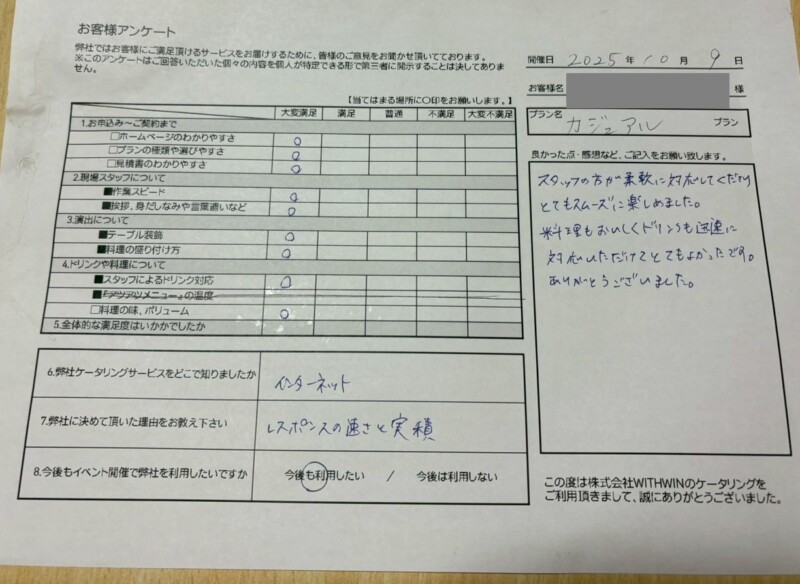 お客様アンケート
弊社ではお客様にご満足頂けるサービスをお届けするために、皆様のご意見をお聞かせ頂いております。
※このアンケートはご回答いただいた個々の内容を個人が特定できる形で第三者に開示することは決してありま
せん。
【当てはまる場所に〇印をお願いします。】
大変満足 満足 普通 不満足 大変不満足
1.お申込み～ご契約まで
□ホームページのわかりやすさ ○
□プランの種類や選びやすさ ○
□見積書のわかりやすさ ○
2.現場スタッフについて
■作業スピード ○
■挨拶、身だしなみや言葉遣いなど ○
3.演出について
■テーブル装飾 ○
■料理の盛り付け方 ○
4.ドリンクや料理について
■スタッフによるドリンク対応 ○
■『アツアツメニュー』の温度
□料理の味、ボリューム ○
5.全体的な満足度はいかがでしたか
6.弊社ケータリングサービスをどこで知りましたか インターネット
7.弊社に決めて頂いた理由をお教え下さい レスポンスの速さと実積
8.今後もイベント開催で弊社を利用したいですか 今後も利用したい / 今後は利用しない
開催日 2025年 10月 9日
お客様名 様
プラン名 カジュアル プラン
良かった点・感想など、ご記入をお願い致します。
スタッフの方が柔軟に対応してくださり
とてもスムーズに楽しめました。
料理もおいしくドリンクも迅速に
対応いただけてとてもよかったです。
ありがとうございました。
この度は株式会社WITHWINのケータリングを
ご利用頂きまして、誠にありがとうございました。